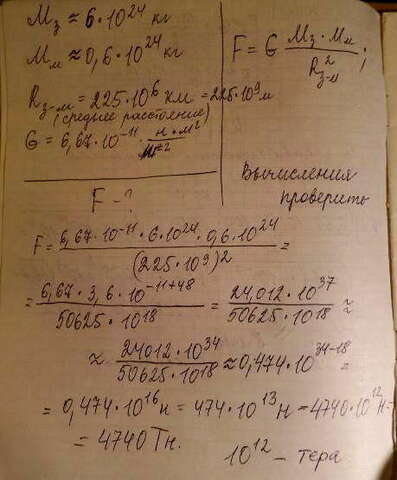 Mз ≈ 6·10²⁴ кг
Mм ≈ 0,6·10²⁴ кг
Rз-м = 225·10⁶ км = 225·10⁹ м
(среднее расстояние)
G = 6,67·10⁻¹¹ · н·м²/кг²
F = G Mз·Mм / R²з-м ;
F - ?
Вычисления
проверить
F = 6,67·10⁻¹¹·6·10²⁴·0,6·10²⁴ / (225·10⁹)² =
= 6,67·3,6·10⁻¹¹⁺⁴⁸ / 50625·10¹⁸ = 24,012·10³⁷ / 50625·10¹⁸ ≈
≈ 24012·10³⁴ / 50625·10¹⁸ ≈ 0,474·10³⁴⁻¹⁸ =
= 0,474·10¹⁶ н = 474·10¹³ н = 4740·10¹² н =
= 4740 Тн.
10¹² - тера